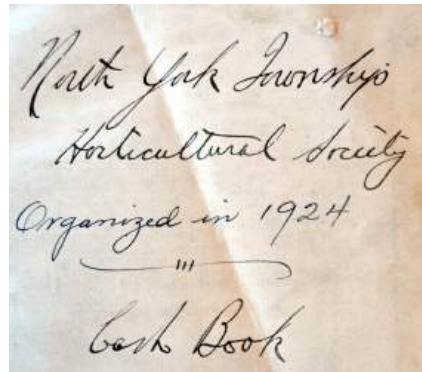 North York Township
Horticultural Society
Organized in 1924
Cash Book